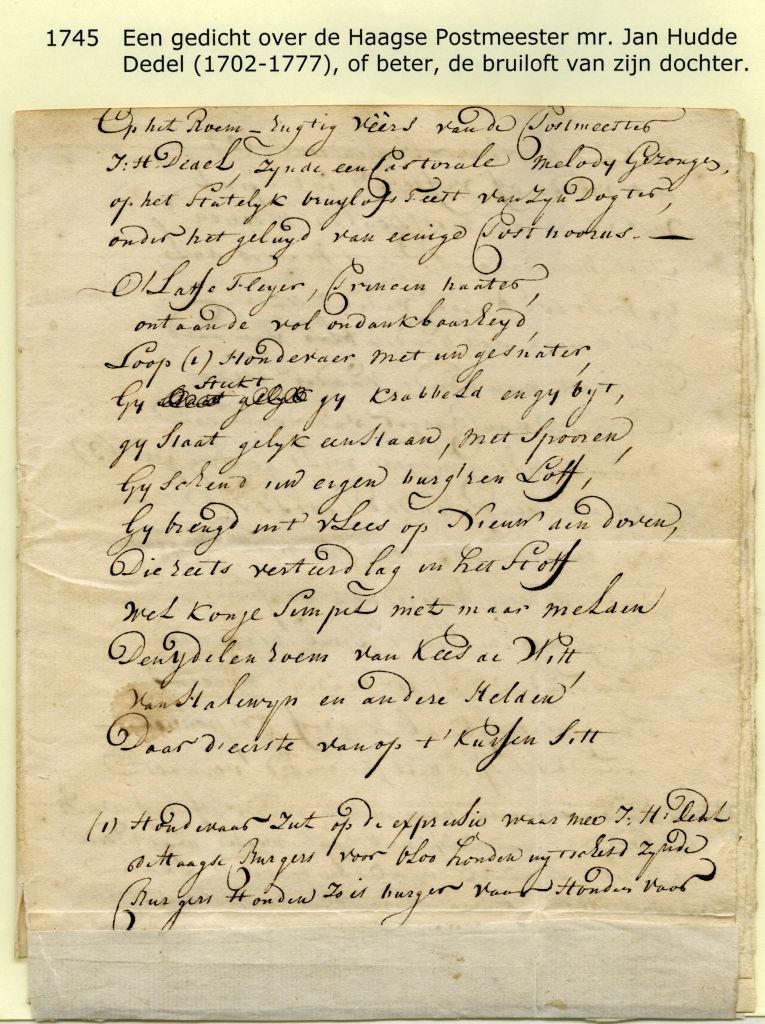 1745 Een gedicht over de Haagse Postmeester mr. Jan Hudde
Dedel (1702-1777), of beter, de bruiloft van zijn dochter.
Op het Roem-zugtig véérs van de Postmeester
J: H: Dedel, zynde een Pastorale melody Gezongen,
op het Statelyk bruylofs Feest van Zyn Dogter,
onder het geluyd van eenige Posthoorns. —
O! Laffe Fleyer, Princen haater,
ontaande vol ondankbaarheyd,
Loop (1) Hondevaer met uw gesnater,
Gy stukt gy krabbeld en gy byt,
gy Staat gelyk een Haan, met Spooren,
Gy schend uw eigen burg'ren Loff,
Gy brengd uit vlees op Nieuw den doren,
Die reets verteerd lag in het Stoff
Wel konje Simpel niet maar melden
Den ydelen roem van Kees de Witt
van Halewyn en andere Helden
Daar d'eerste van op t' Kussen Sitt
(1) Hondevaar Ziet op de expressie waar mee J: H: Dedel
de Haagse Burgers voor bloo honden uytscheld zynde
Burgers Honden Zo is burger vaar Honden vaar